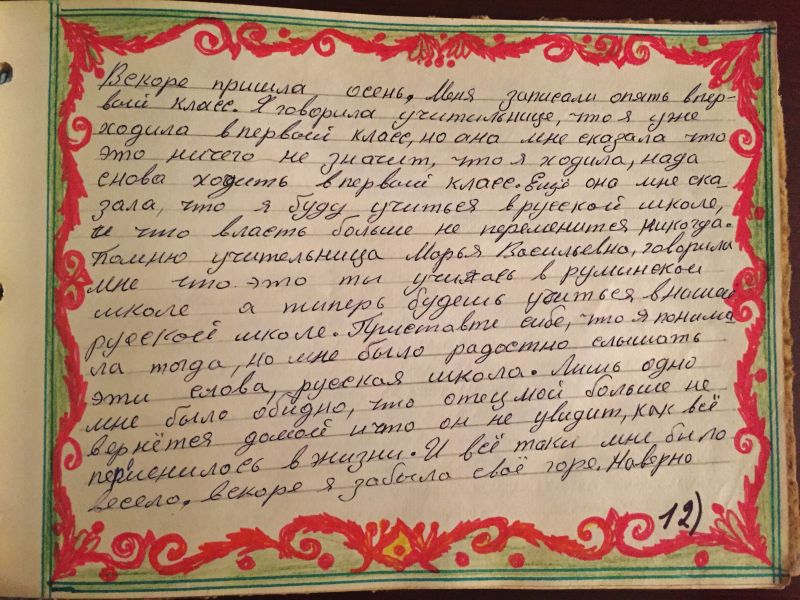 Вскоре пришла осень, Меня записали опять впер-
вый класс. Я говорила учительнице, что я уже
ходила впервый класс, но она мне сказала что
это ничего не значит, что я ходила, нада
снова ходить впервый класс. Ещё она мне ска-
зала, что я буду учиться врусской школе,
и что власть больше не переменится никогда.
Помню учительница Марья Васильевна, говорила
мне что это ты училась в румынской
школе а типерь будешь учиться внашей
русской школе. Приставте сибе, что я понима-
ла тогда, но мне было радостно слышать
эти слова, русская школа. Лишь одно
мне было обидно, что отец мой больше не
вернётся домой ичто он не увидит, как всё
перисинилось вжизни. И всё таки мне было
весело, вскоре я забыла своё горе. Наверно
12)